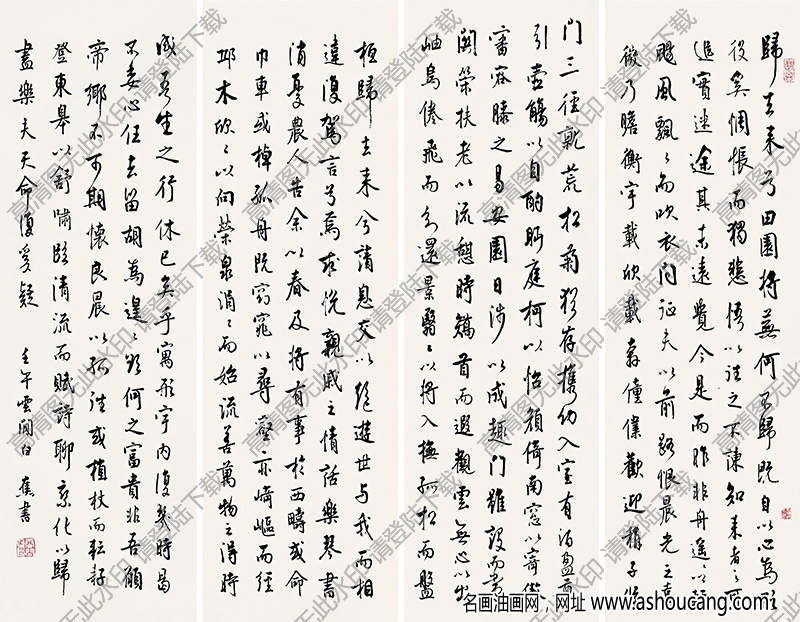 歸去來兮田園將蕪何不歸既自以心為形
役奚惆悵而獨悲悟以往之不諫知來者之可
追實迷途其未遠覺今是而昨非舟遙々以輕
颺風飄々而吹衣問征夫以前路恨晨光之熹
微乃瞻衡宇載欣載奔僮僕歡迎稚子候
門三徑就荒松菊猶存攜幼入室有酒盈尊
引壺觴以自酌眄庭柯以怡顏倚南窓以寄傲
審容膝之易安園日涉以成趣門雖設而常
關策扶老以流憩時矯首而遐觀雲無心以出
岫鳥倦飛而知還景翳々以將入撫孤松而盤
桓歸去來兮請息交以絕遊世與我而相
違復駕言兮焉求悅親戚之情話樂琴書
消憂農人告余以春及將有事於西疇或命
巾車或棹孤舟既窈窕以尋壑亦崎嶇而經
邱木欣々以向榮泉涓々而始流善萬物之得時
感吾生之行休已矣乎寓形宇內復幾時曷
不委心任去留胡為遑々欲何之富貴非吾願
帝鄉不可期懷良晨以孤往或植杖而耘耔
登東皋以舒嘯臨清流而賦詩聊乘化以歸
盡樂夫天命復奚疑 壬午雲間白蕉書
高清图无此水印 请登陆下载
名画油画网，网址 www.ashoucang.com